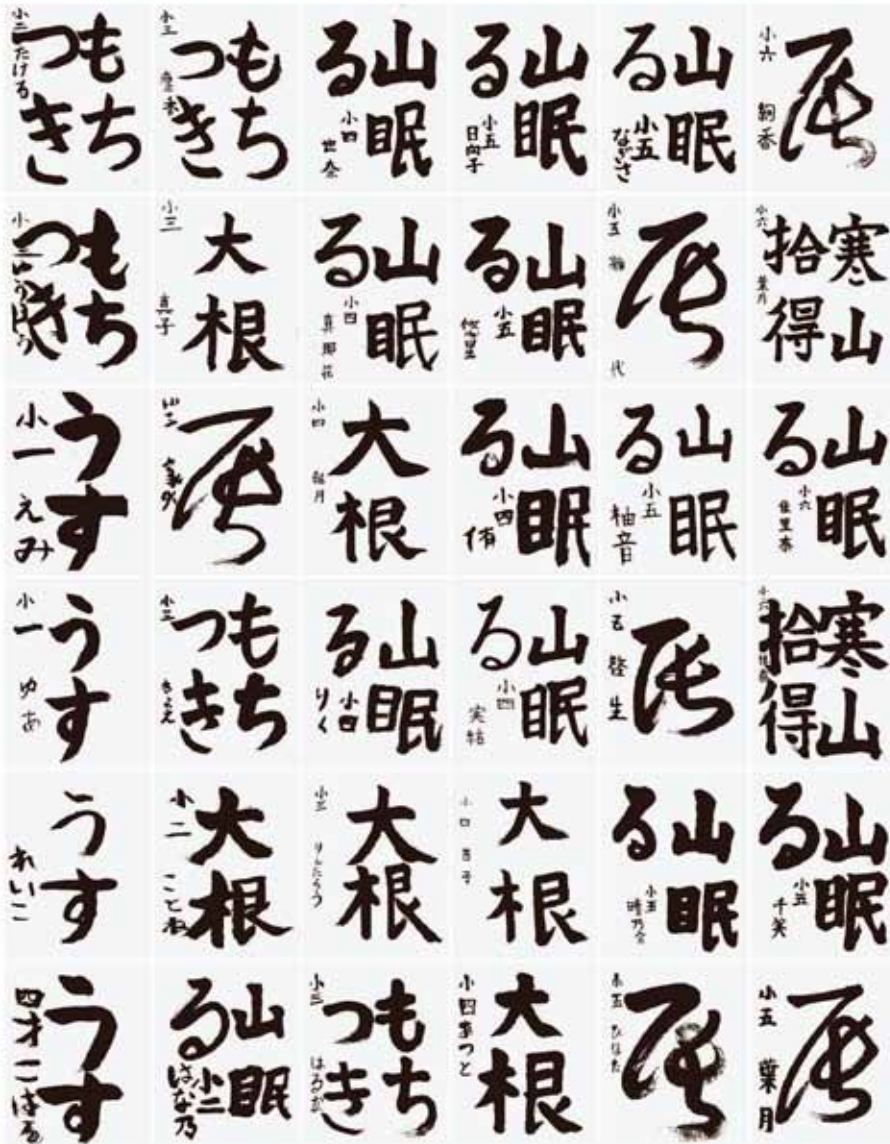 もち
つき
小二たける
もち
つき
小三
山眠
る
小四
世奈
山眠
る
小五
日向子
山眠
る
小五
なぎさ
辰
小六
絢香
もち
つき
小二
大根
小三
真子
山眠
る
小四
真那花
山眠
る
小五
悠里
辰
小五
代
寒山
拾得
小六
葉月
うす
小一えみ
辰
大根
小四
山眠
る
小四
侑
山眠
る
小五
柚音
山眠
る
小六
佳里奈
うす
小一
ゆあ
もち
つき
小三
山眠
る
小四
りく
山眠
る
小四
実結
辰
小五
寒山
拾得
小六
うす
れいこ
大根
小二
ことね
大根
小三
りんたろう
大根
小四
山眠
る
小五
晴乃介
山眠
る
小五
千笑
うす
四才こはる
山眠
る
小二
はな乃
もち
つき
小三
大根
小四あつと
辰
小五
ひなた
辰
小五
葉月